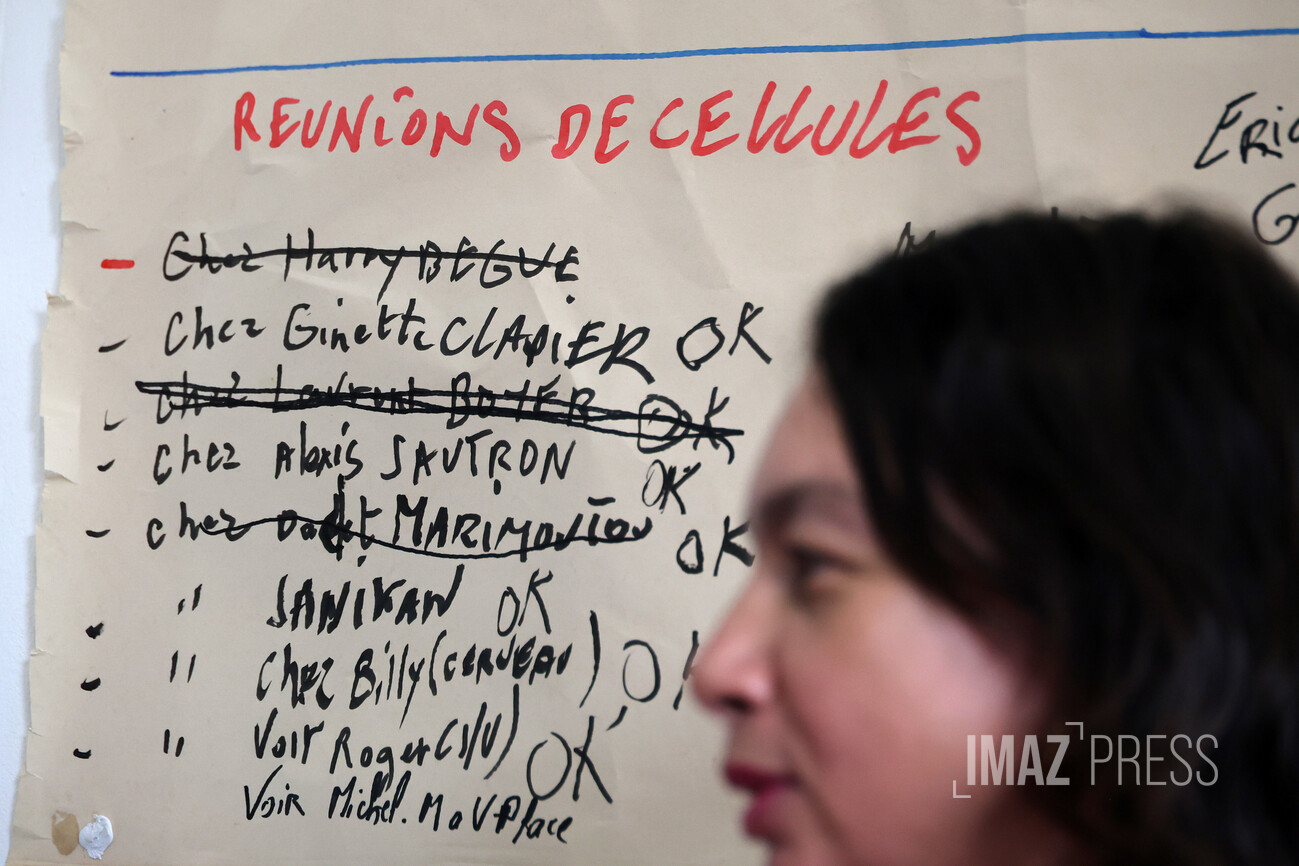 REUNIONS DE CELLULES
ERIC
G
- Chez Harry BEGUE
- Chez Ginette CLAPIER OK
- chez Laurent BOYER OK
- chez Alexis SAUTRON OK
- chez MARIMOUTOU OK
- " SANIKAN OK
- " Chez Billy (CERVEAU) OK
- " Voir Roger (S/V) OK
Voir Michel. M Place
IMAZ PRESS